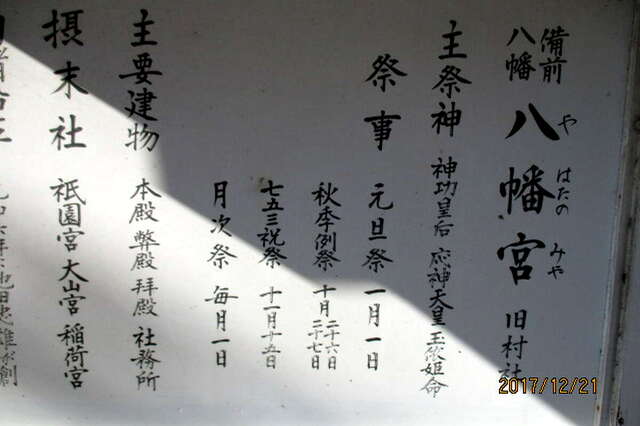 備前
八幡
八幡宮 旧村社
や はたの みや
主祭神 神功皇后 応神天皇 玉依姫命
祭事 元旦祭 一月一日
秋季例祭 十月 二十六日 二十七日
七五三祝祭 十一月十五日
月次祭 毎月一日
主要建物 本殿 弊殿 拝殿 社務所
摂末社 祇園宮 大山宮 稲荷宮
2017/12/21